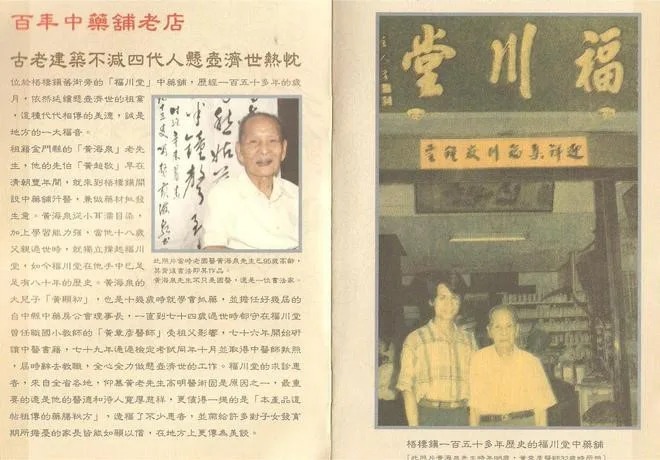 百年中藥舖老店
古老建築不減四代人懸壺濟世熱忱
位於梧棲鎮舊街旁的「福川堂」中藥舖，歷經一百五十多年的歲
月，依然延續懸壺濟世的祖業
，這種代代相傳的美德，誠是
地方的一大福音。
祖籍金門縣的「黃海泉」老先
生，他的先伯「黃超敬」早在
清朝豐年間，就來到梧棲鎮開
設中藥舖行醫，兼做藥材批發
生意。黃海泉從小耳濡目染，
加上學習能力強，當他十八歲
父親過世時，就獨立撐起福川
堂，如今福川堂在他手中已足
足有八十年的歷史。黃海泉的
大兒子「黃顯初」，也是十幾歲時就學會抓藥，並擔任好幾屆的
台中縣中藥房公會理事長，一直到七十四歲過世時都守在福川堂
曾任職國小教師的「黃章彥醫師」受祖父影響，七十六年開始研
讀中醫書籍，七十九年通過檢定考試同年十月並取得中醫師執照
，屆時辭去教職，全心全力做懸壺濟世的工作。福川堂的求診患
者，來自全省各地，仰慕黃老先生高明醫術固是原因之一，最重
要的還是他的醫德和待人寬厚慈祥，更值得一提的是「本產品這
帖祖傳的藥膳秘方」，造福了不少患者，並開給許多對子女發育
期所擔憂的家長皆能如願以償，在地方上更傳為美談。
此照片當時老國醫黃海泉先生已95歲高齡，
其背後書法即其作品。
黃海泉先生不只是國醫，還是一位書法家。
福川堂
梧棲鎮一百五十多年歷史的福川堂中藥舖